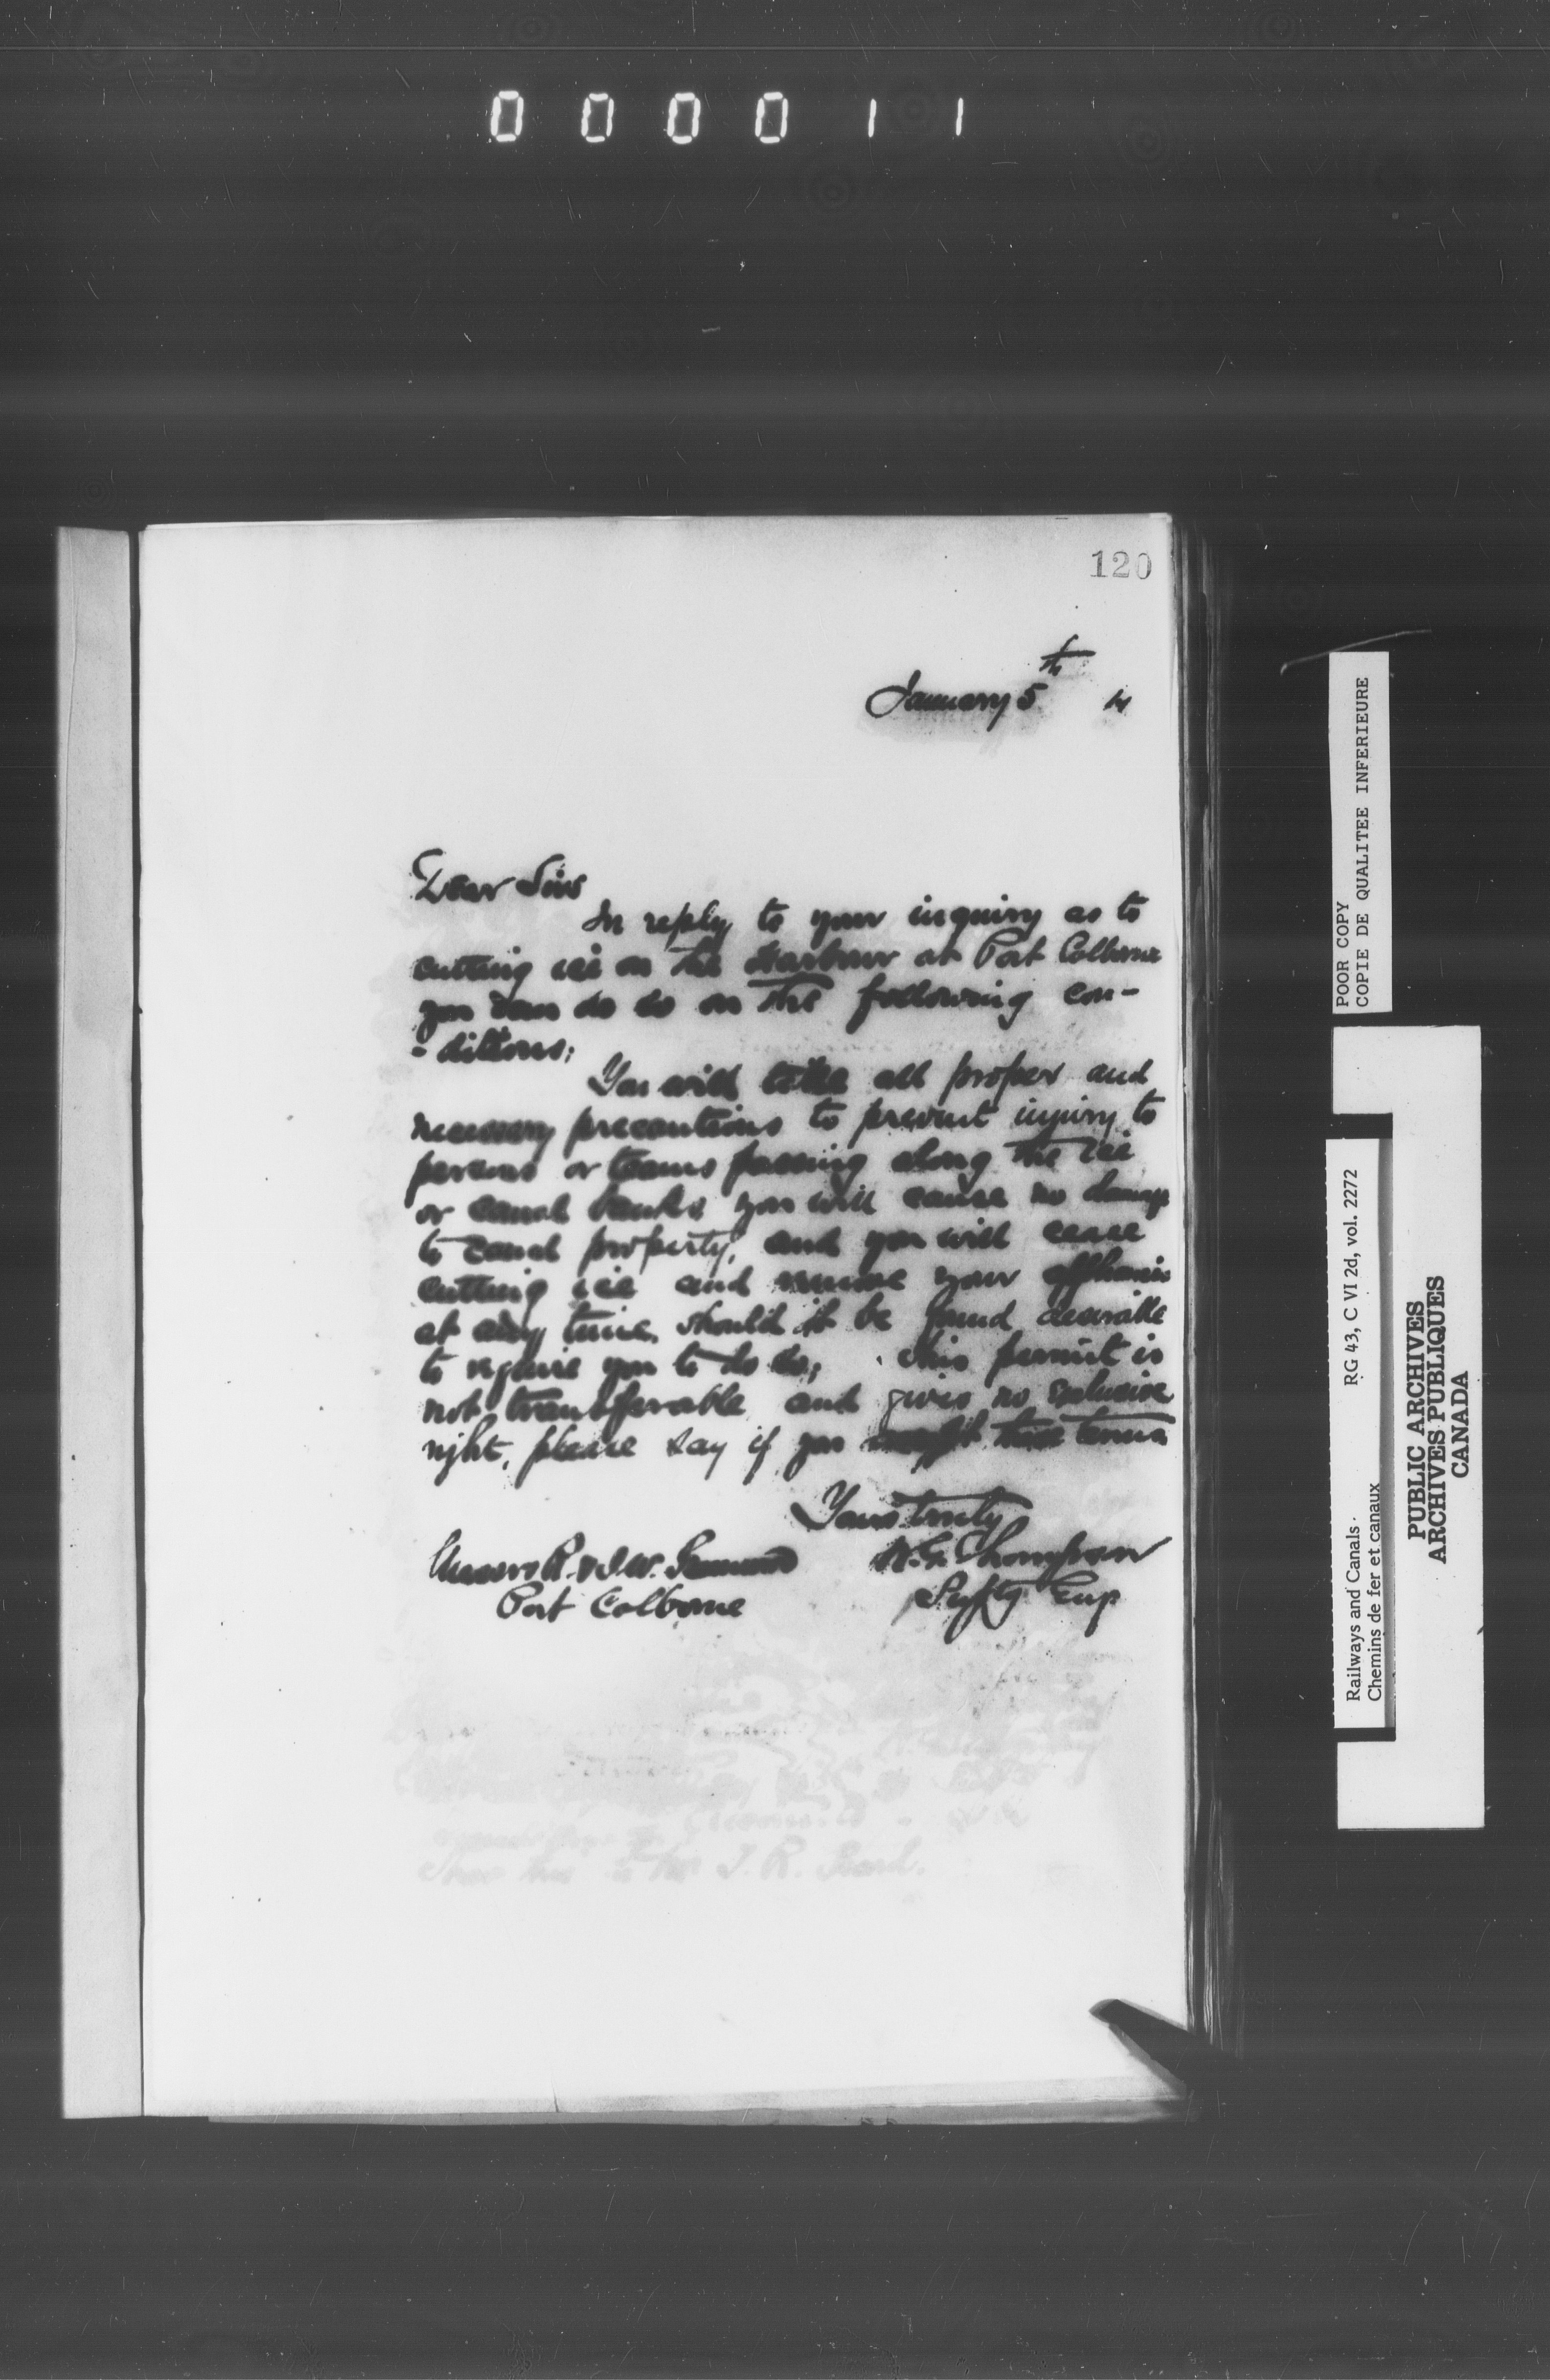 000011
120
January 5th
Dear Sirs
In reply to your inquiry as to
cutting ice on the Harbour at Port Colborne
you can do so on the following con-
- ditions;
You will take all proper and
necessary precautions to prevent injury to
persons or teams passing along the ice
or canal banks you will cause no damage
to canal property, and you will cease
cutting ice and remove your appliances
at any time, should it be found desirable
to require you to do so; this permit is
not transferable and gives no exclusive
right, please say if you accept these terms
Yours truly
W.G. Thompson
Suptg Eng
Messrs R. & J.W.
Port Colborne
J. R.
POOR COPY
COPIE DE QUALITEE INFERIEURE
RG 43, C VI 2d, vol. 2272
Railways and Canals
Chemins de fer et canaux
PUBLIC ARCHIVES
ARCHIVES PUBLIQUES
CANADA